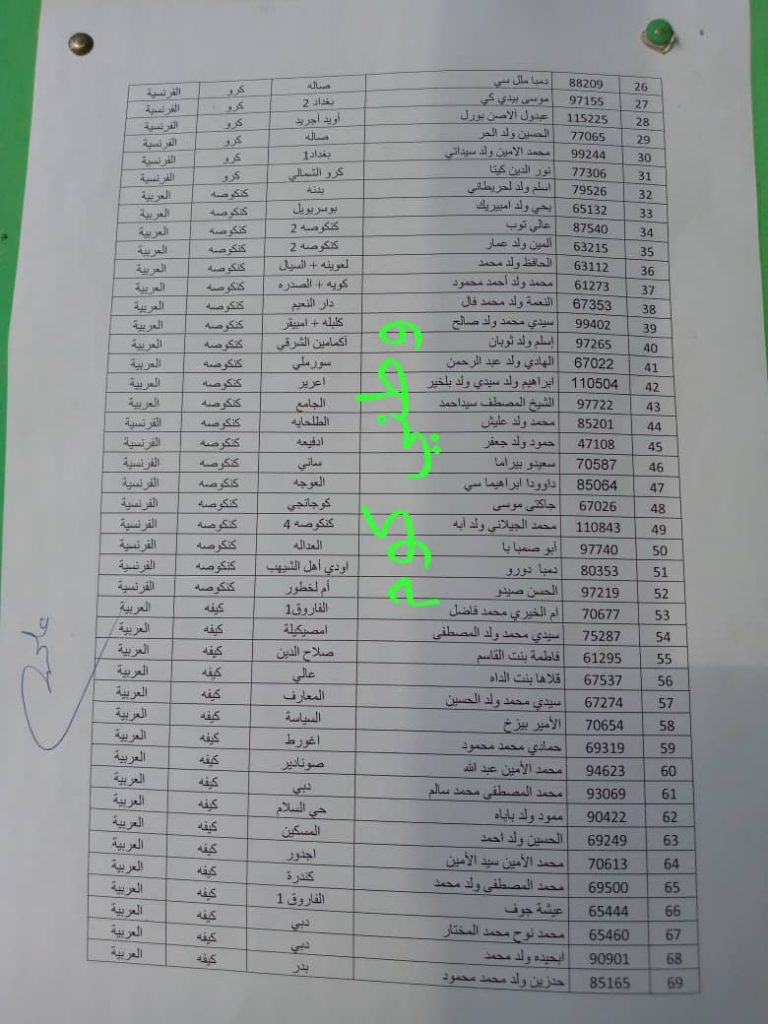 26 88209 دمبا ملل سي صاله كرو الفرنسية
27 97155 موسى بيدي كي بغداد 2 كرو الفرنسية
28 115225 عبدول الاصن بورل أويد أجريد كرو الفرنسية
29 77065 الحسين ولد الحر صاله كرو الفرنسية
30 99244 محمد الامين ولد سيداتي بغداد1 كرو الفرنسية
31 77306 نور الدين كيتا كرو الشمالي كرو الفرنسية
32 79526 اسلم ولد لحريطاني بدنه كنكوصه العربية
33 65132 يحي ولد امبيريك بوسرويل كنكوصه العربية
34 87540 عالي توب كنكوصه 2 كنكوصه العربية
35 63215 ألمين ولد عمار كنكوصه 2 كنكوصه العربية
36 63112 الحافظ ولد محمد لعوينه + السيال كنكوصه العربية
37 61273 محمد ولد أحمد محمود كويه + الصدره كنكوصه العربية
38 67353 النعمة ولد محمد فال دار النعيم كنكوصه العربية
39 99402 سيدي محمد ولد صالح كلبله + امبيقر كنكوصه العربية
40 97265 إسلم ولد ثوبان أكمامين الشرقي كنكوصه العربية
41 67022 الهادي ولد عبد الرحمن سورملي كنكوصه العربية
42 110504 ابراهيم ولد سيدي ولد بلخير اعرير كنكوصه العربية
43 97722 الشيخ المصطف سيداحمد الجامع كنكوصه العربية
44 85201 محمد ولد عليش الطلحايه كنكوصه الفرنسية
45 47108 حمود ولد جعفر ادفيعه كنكوصه الفرنسية
46 70587 سعيدو بيراما ساني كنكوصه الفرنسية
47 85064 داوودا ابراهيما سي العوجه كنكوصه الفرنسية
48 67026 جاكتى موسى كوجانجي كنكوصه الفرنسية
49 110843 محمد الجيلاني ولد أبه كنكوصه 4 كنكوصه الفرنسية
50 97740 أبو صمبا با العداله كنكوصه الفرنسية
51 80353 دمبا دورو اودي أهل الشيهب كنكوصه الفرنسية
52 97219 الحسن صيدو أم لخطور كنكوصه الفرنسية
53 70677 ام الخيري محمد فاضل الفاروق1 كيفه العربية
54 75287 سيدي محمد ولد المصطفى امصيكيلة كيفه العربية
55 61295 فاطمة بنت القاسم صلاح الدين كيفه العربية
56 67537 قلاها بنت الداه عالي كيفه العربية
57 67274 سيدي محمد ولد الحسين المعارف كيفه العربية
58 70654 الأمير بيزخ السياسة كيفه العربية
59 69319 حمادي محمد محمود اغورط كيفه العربية
60 94623 محمد الأمين عبد الله صونادير كيفه العربية
61 93069 محمد المصطفى محمد سالم دبي كيفه العربية
62 90422 ممود ولد باباه حي السلام كيفه العربية
63 69249 الحسين ولد احمد المسكين كيفه العربية
64 70613 محمد الأمين سيد الأمين اجدور كيفه العربية
65 69500 محمد المصطفى ولد محمد كندرة كيفه العربية
66 65444 عيشة جوف الفاروق 1 كيفه العربية
67 65460 محمد نوح محمد المختار دبي كيفه العربية
68 90901 ابحيده ولد محمد دبي كيفه العربية
69 85165 حدزين ولد محمد محمود بدر كيفه العربية
وطني كوم